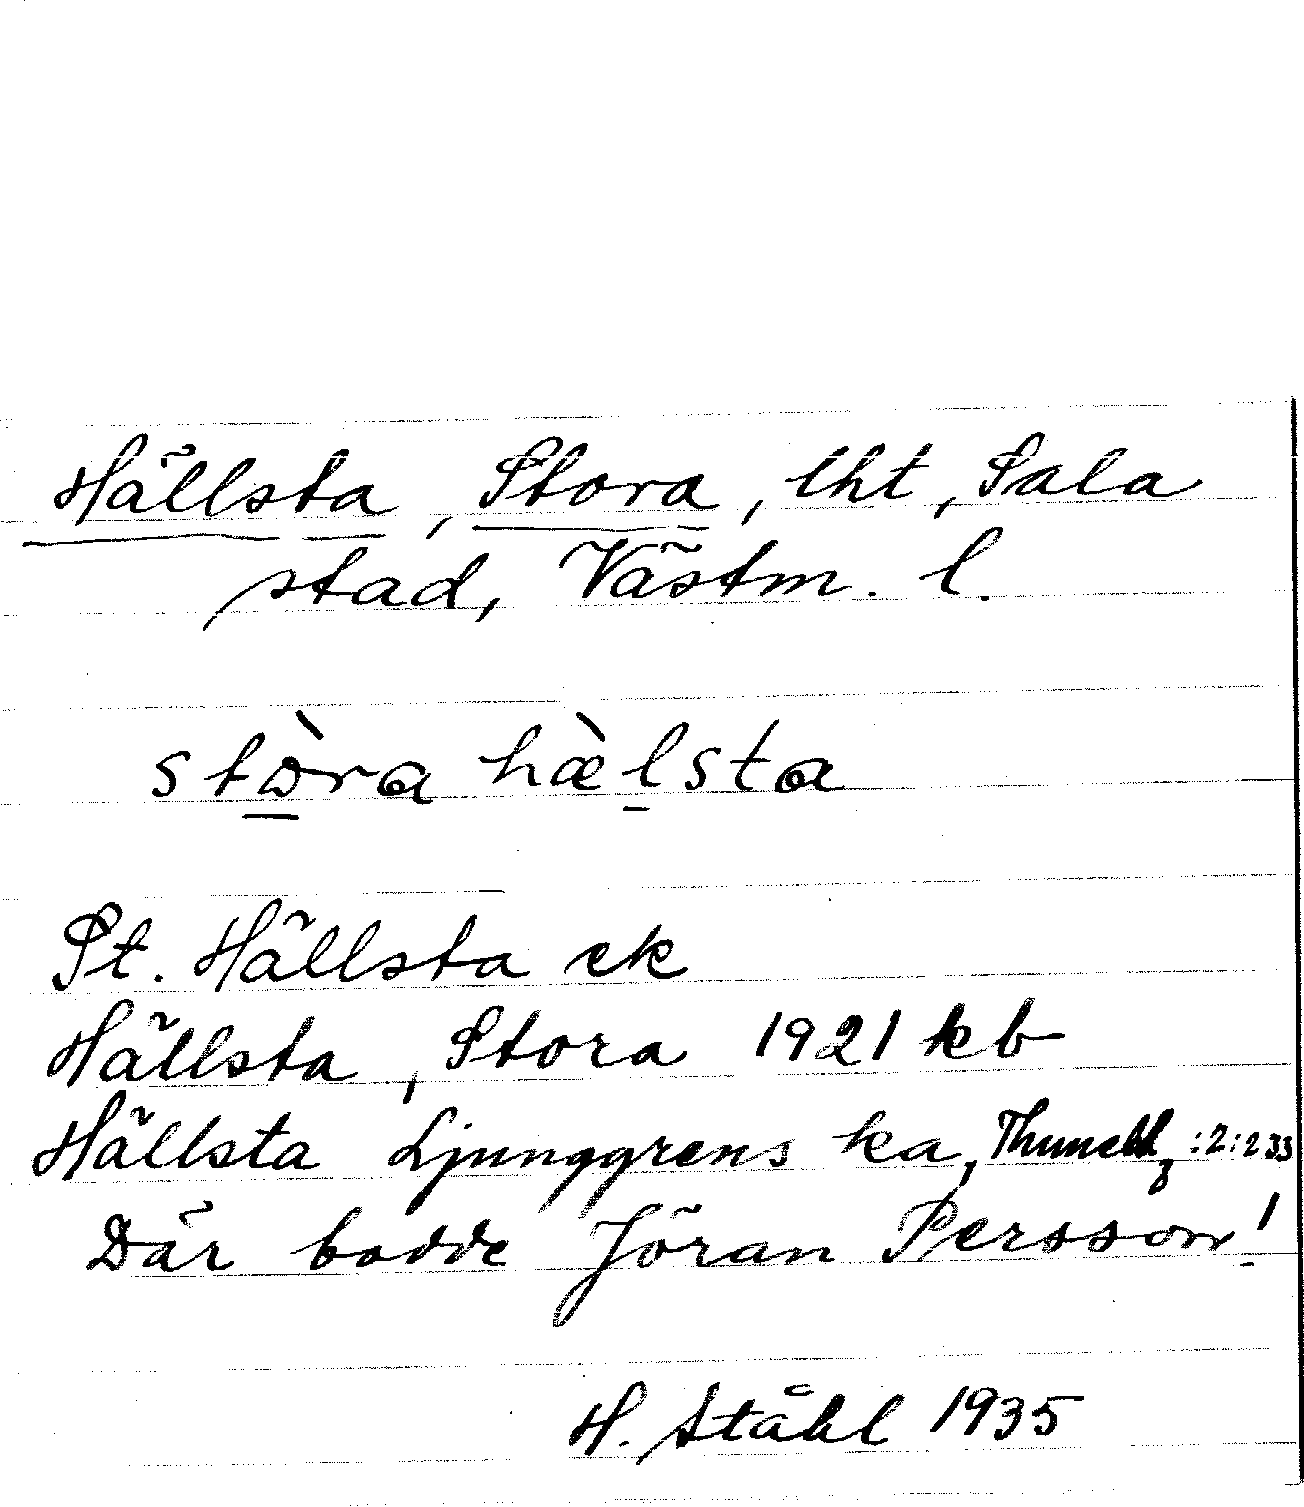 Hällsta, Stora, lht, Sala
stad, Västm. l.
stòra hæ̀lsta
St. Hällsta ek
Hällsta, Stora 1921 kb
Hällsta Ljunggrens ka, :2:233
Där bodde Jöran Persson!
H. Ståhl 1935